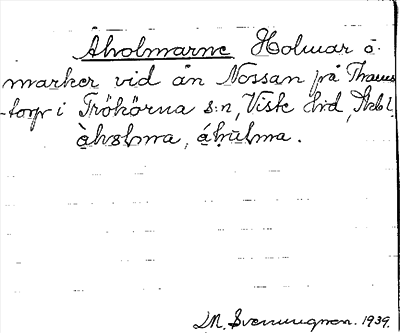 Åholmarne Holmar o.
marker vid ån Nossan på Thams
-torp i Trökörna s:n, Viste hrd, Skbl.
M. Svenungsson. 1939.